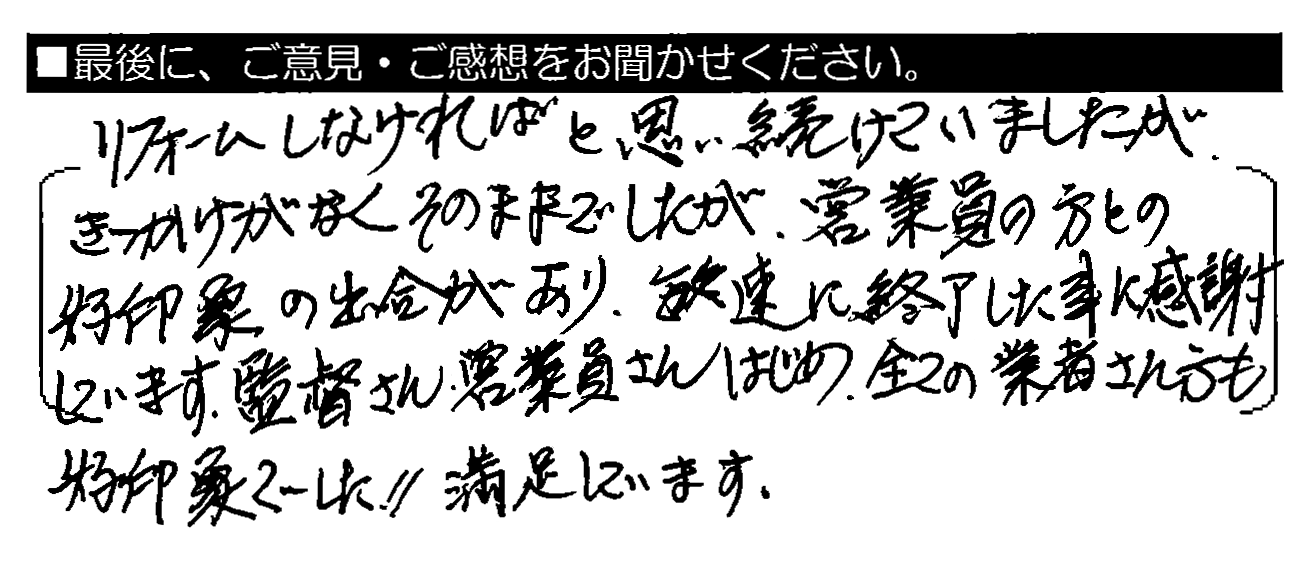 ■最後に、ご意見・ご感想をお聞かせください。
リフォームしなければと思い続けていましたが、
きっかけがなくそのままでしたが、営業員の方との
好印象の出合があり、敏速に終了した事に感謝
しています。監督さん、営業員さんはじめ、全ての業者さん方も
好印象でした!! 満足しています。